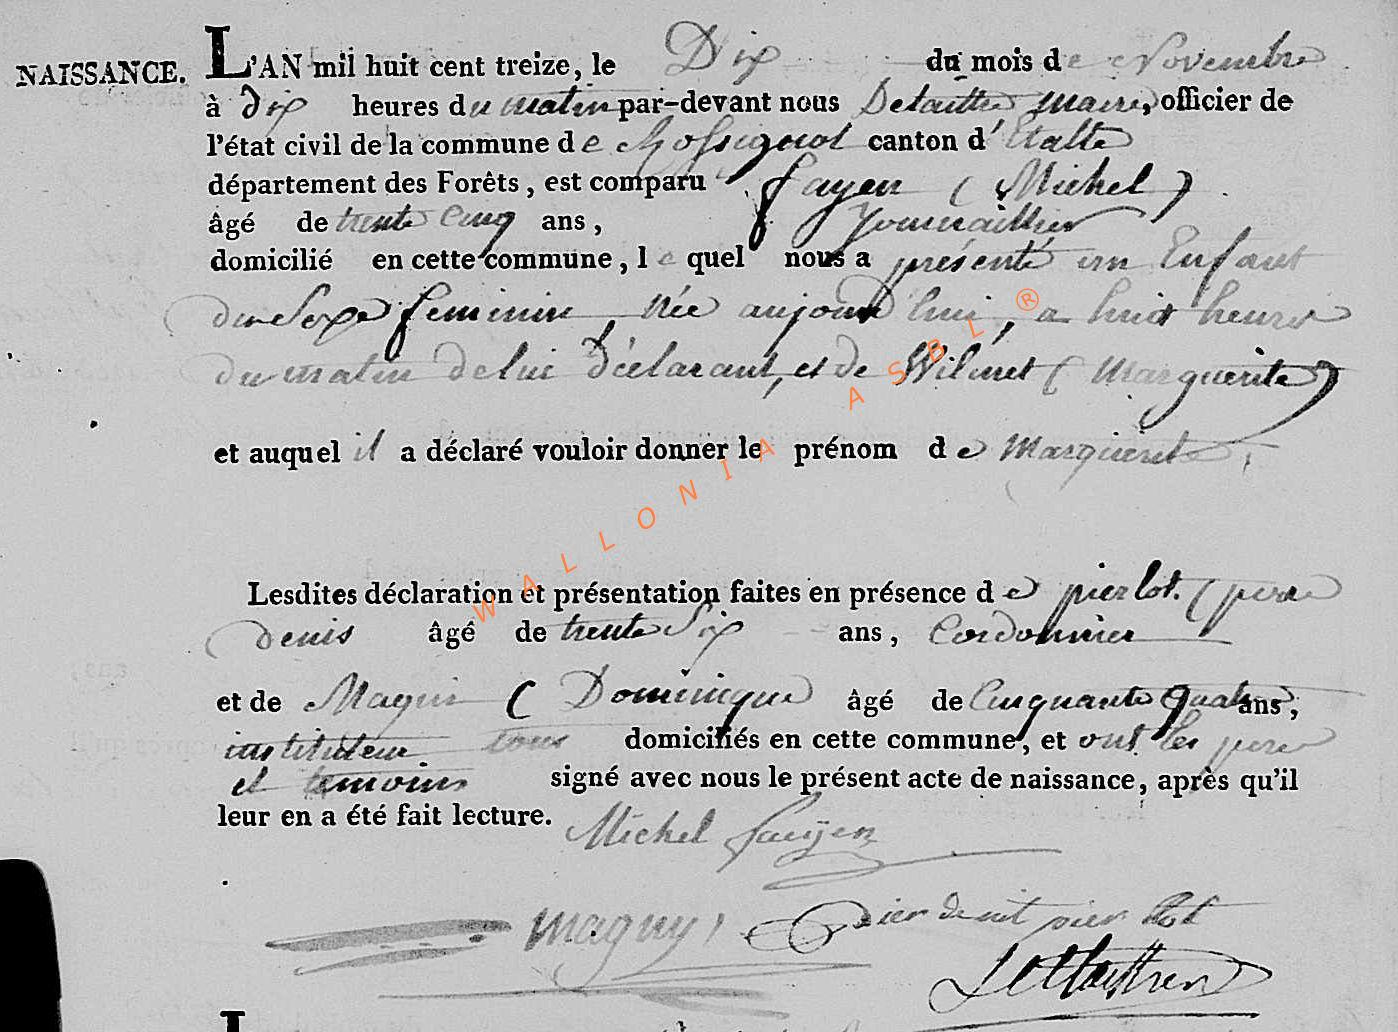 NAISSANCE. L'AN mil huit cent treize, le Dix du mois de Novembre
à dix heures du matin par-devant nous Detaitter maire, officier de
l'état civil de la commune de Rossignol canton d'Etalle
département des Forêts, est comparu fayen (Michel)
âgé de trente cinq ans, Journaillier
domicilié en cette commune, le quel nous a présenté un Enfant
du Sexe feminin, née aujourd'hui, a huit heures
du matin de lui Déclarant, et de Wilmet (Marguerite)
et auquel il a déclaré vouloir donner le prénom de Marguerite,
Lesdites déclaration et présentation faites en présence de pierlot. (pierre
denis âgé de trente Six ans, Cordonnier
et de Magni (Dominique âgé de Cinquante Quatre ans,
instituteur tous domiciliés en cette commune, et ont les peres
et temoins signé avec nous le présent acte de naissance, après qu'il
leur en a été fait lecture. Michel fayen
magny pier denit pier lot
WALLONIA ASBL ®
L